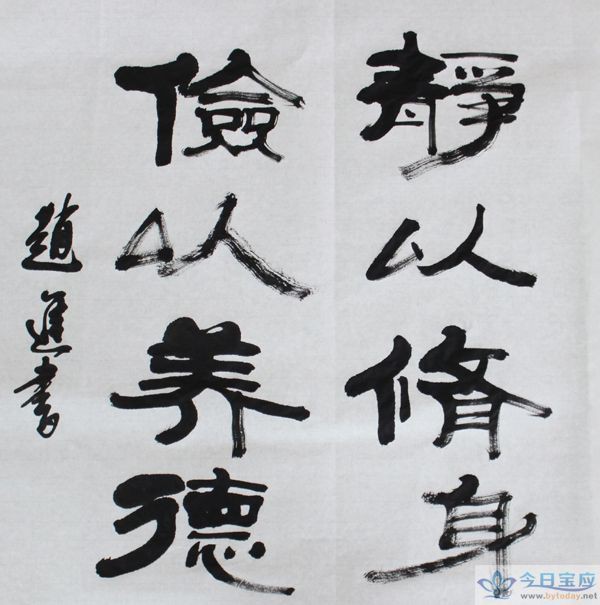 靜以脩身
儉以养德
趙進書
今日宝应
www.bytoday.net